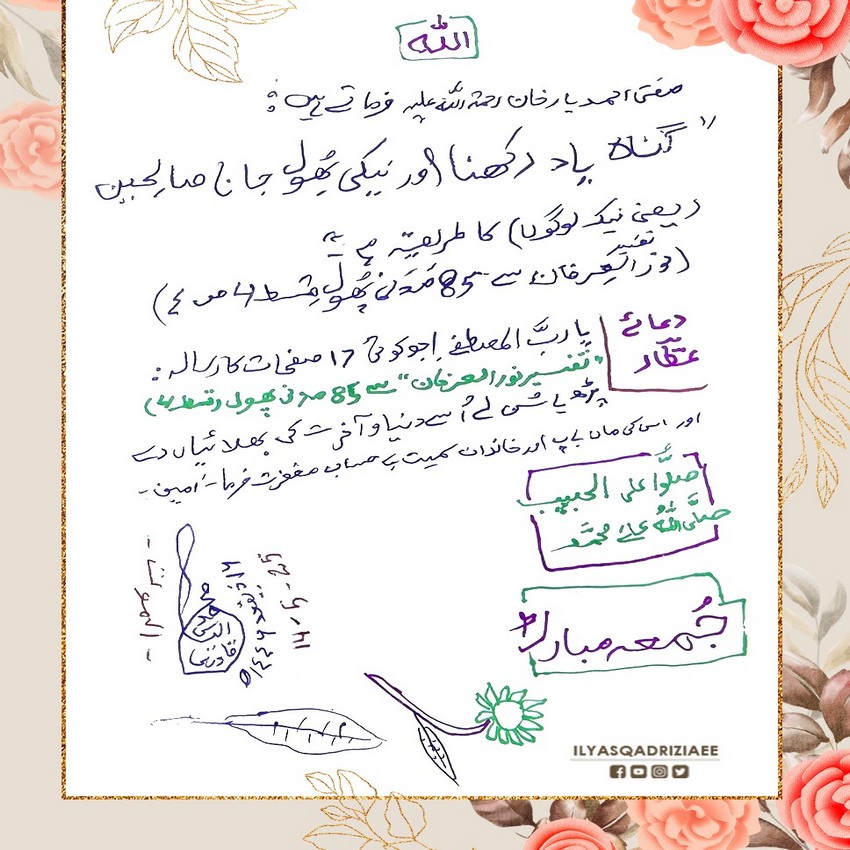 اللہ
مفتی احمد یار خان رحمۃ اللہ علیہ فرماتے ہیں :
"گناہ یاد رکھنا اور نیکی بھول جانا صالحین
(یعنی نیک لوگوں) کا طریقہ ہے"
(تفسیر نور العرفان سے 85 مَدَنی پھول قسط 4 ص
دعائے عطّار
یا ربَّ المصطفےٰ! جو کوئی 17 صفحات کا رسالہ:
"تفسیر نور العرفان" سے 85 مدنی پھول (قسط 4)
پڑھ یا سُن لے اُسے دنیا و آخرت کی بھلائیاں دے
اور اس کی ماں باپ اور خاندان سمیت بے حساب مغفرت فرما۔ اٰمین۔
صلُّوا علی الحبیب
صلَّی اللہُ علٰی محمَّد
جُمعہ مبارک
محمد الیاس قادری
14-5-25
ILYASQADRIZIAEE